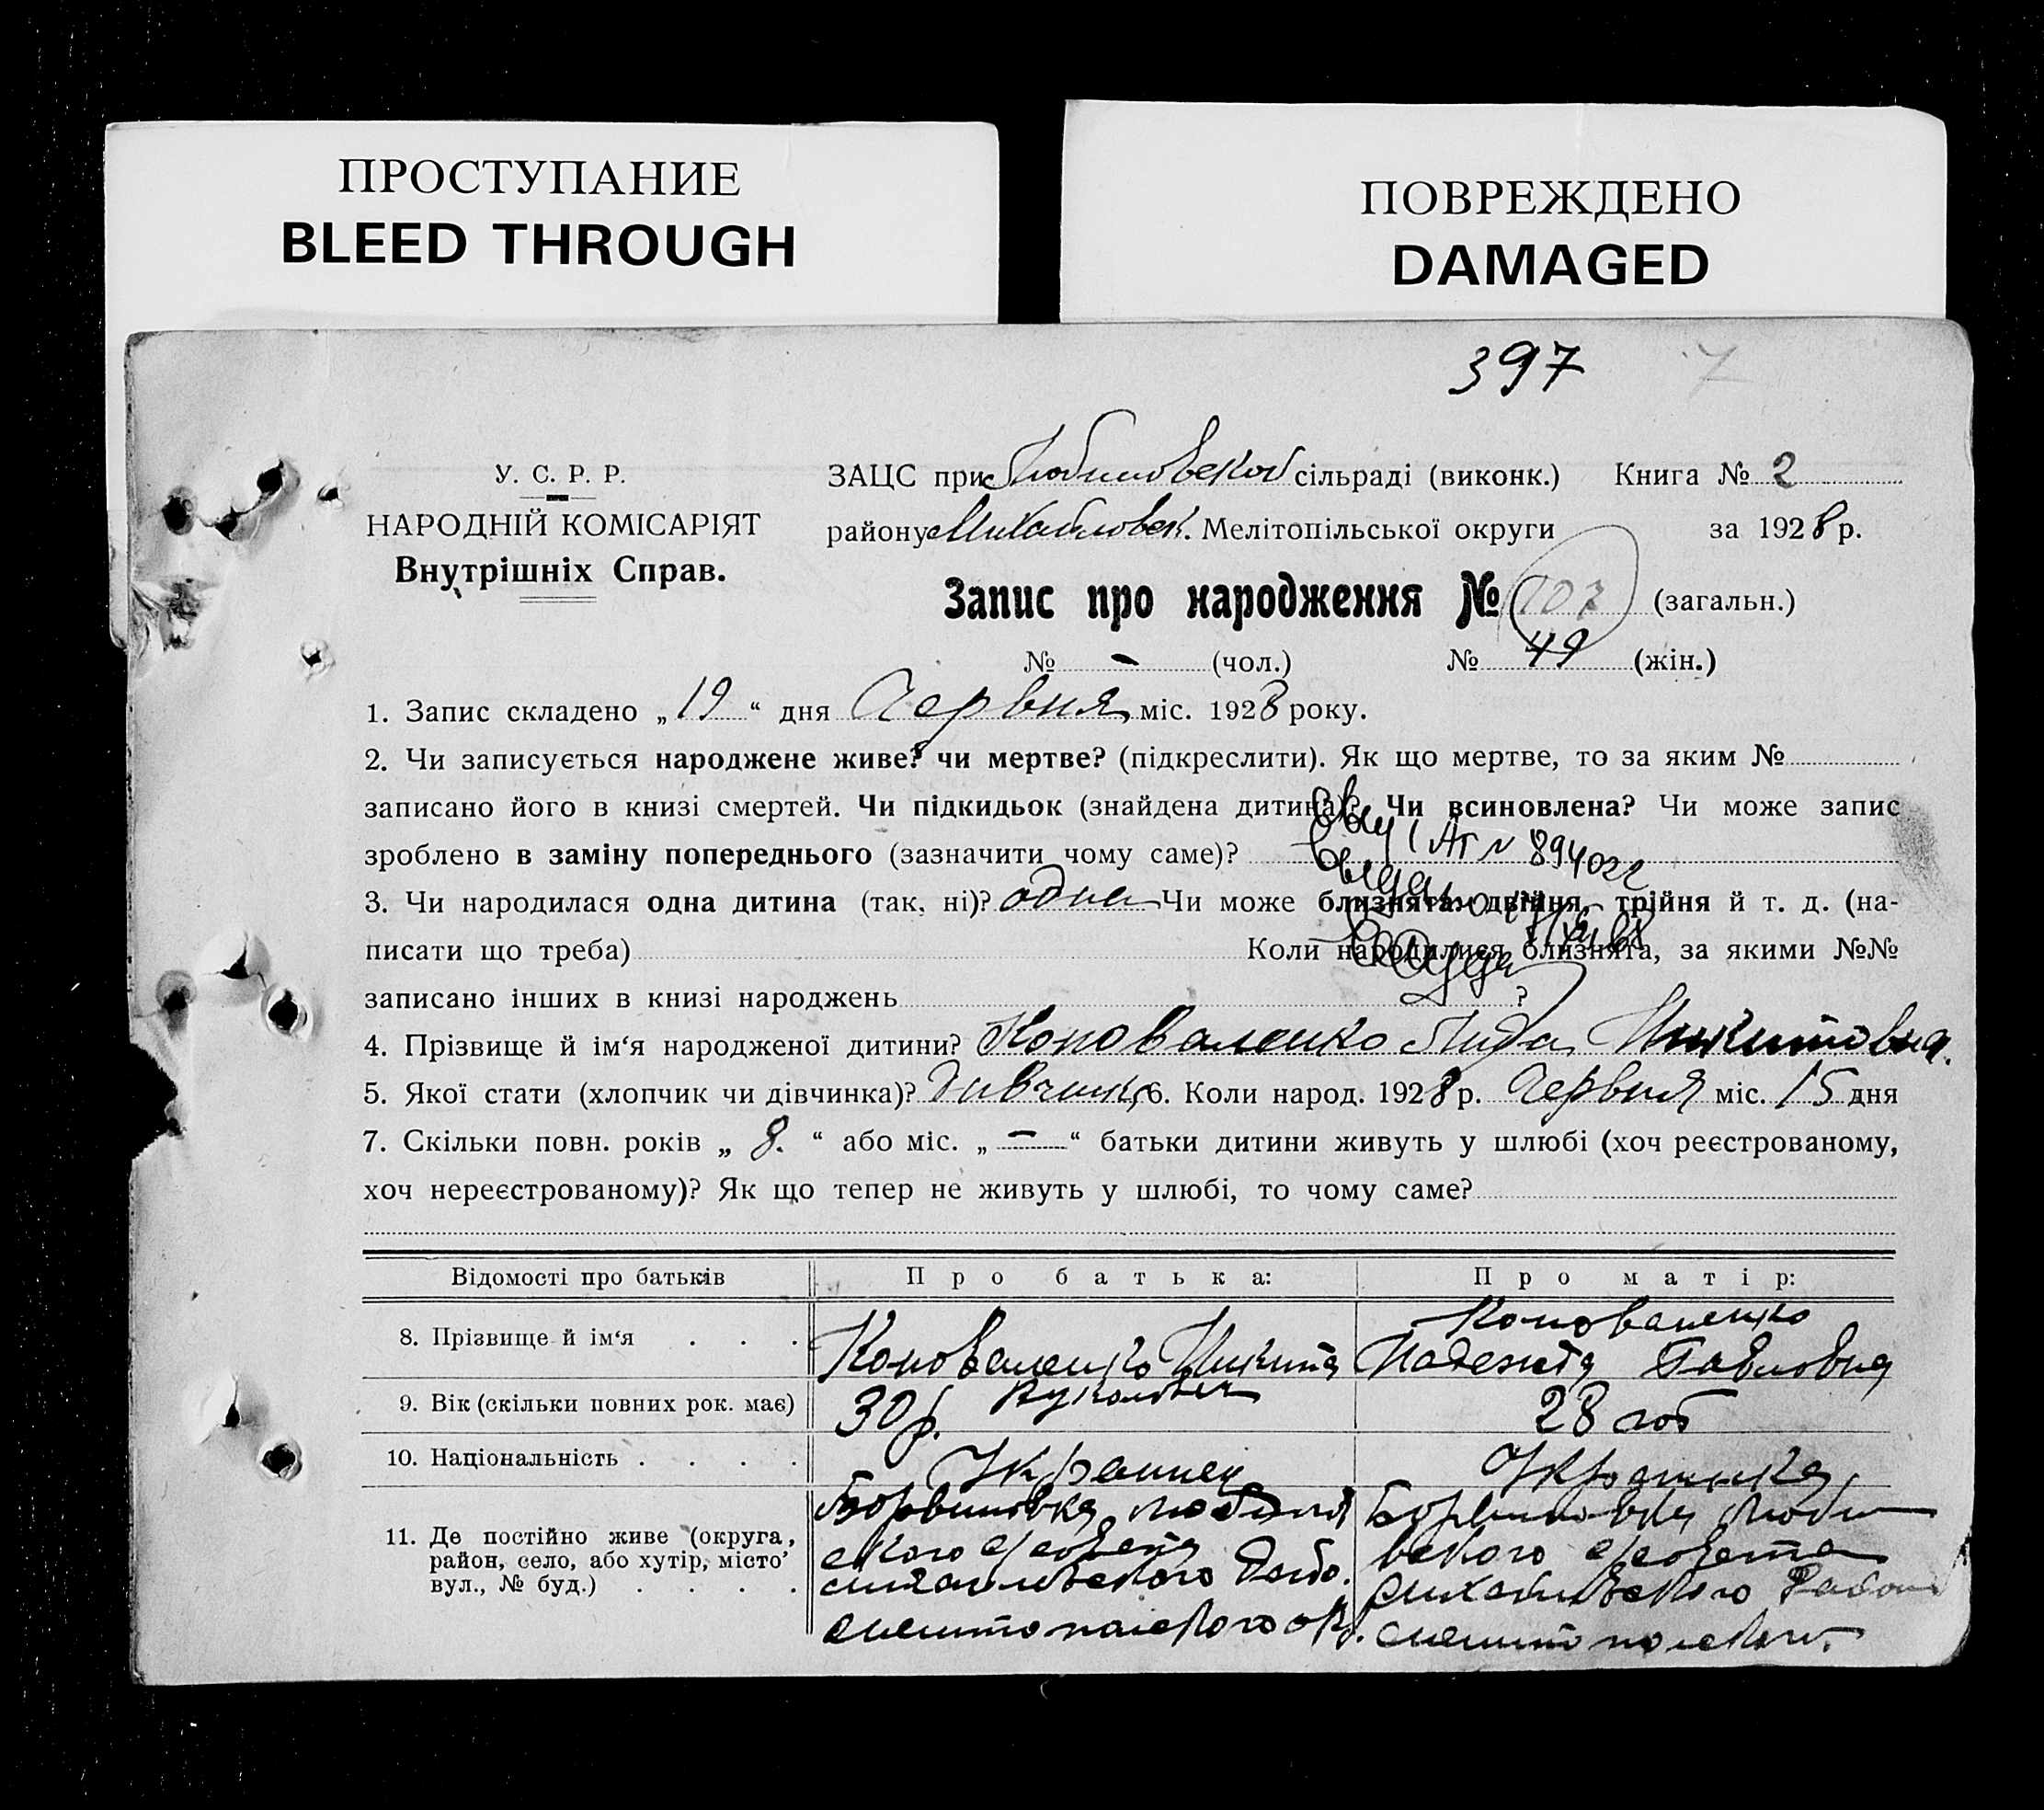 ПРОСТУПАНИЕ
BLEED THROUGH
ПОВРЕЖДЕНО
DAMAGED
397 7
У. С. Р. Р.
НАРОДНІЙ КОМІСАРІЯТ
Внутрішніх Справ.
ЗАЦС при Любимовской сільраді (виконк.) Книга № 2
району Михайловск. Мелітопільської округи за 1928 р.
Запис про народження № 107 (загальн.)
№ - (чол.) № 49 (жін.)
1. Запис складено „19“ дня Червня міс. 1928 року.
2. Чи записується народжене живе? чи мертве? (підкреслити). Як що мертве, то за яким №
записано його в книзі смертей. Чи підкидьок (знайдена дитина)? Чи всиновлена? Чи може запис
зроблено в заміну попереднього (зазначити чому саме)?
3. Чи народилася одна дитина (так, ні)? одна Чи може близнята: двійня, трійня й т. д. (на-
писати що треба) Коли народилися близнята, за якими №№
записано інших в книзі народжень ?
4. Прізвище й ім‘я народженої дитини? Коноваленко Лида Никитовна.
5. Якої стати (хлопчик чи дівчинка)? дивчинка 6. Коли народ. 1928 р. Червня міс. 15 дня
7. Скільки повн. років „8.“ або міс. „-“ батьки дитини живуть у шлюбі (хоч реєстрованому,
хоч нереєстрованому)? Як що тепер не живуть у шлюбі, то чому саме?
Відомості про батьків Про батька: Про матір:
8. Прізвище й ім‘я Коноваленко Никита Коноваленко Надежда Павловна
9. Вік (скільки повних рок. має) 30 р. 28 год
10. Національність Украинец Украинка
11. Де постійно живе (округа,
район, село, або хутір, місто,
вул., № буд.)